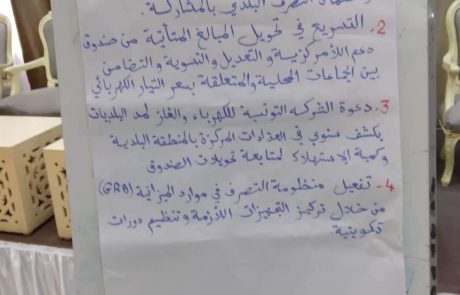 التصرف البلدي بالمشاركة.
2- التسريع في تحويل المبالغ المتأتية من صندوق
دعم اللامركزية والتعديل والتسوية والتضامن
بين الجماعات المحلية والمتعلقة بسعر التيار الكهربائي
3- دعوة الشركة التونسية للكهرباء والغاز لمد البلديات
بكشف سنوي في العدادات المركزة بالمنطقة البلدية
وكمية الاستهلاك لمتابعة تحويلات الصندوق
4- تفعيل منظومة التصرف في موارد الميزانية (GRB)
من خلال تركيز التجهيزات اللازمة وتنظيم دورات
تكوينية.